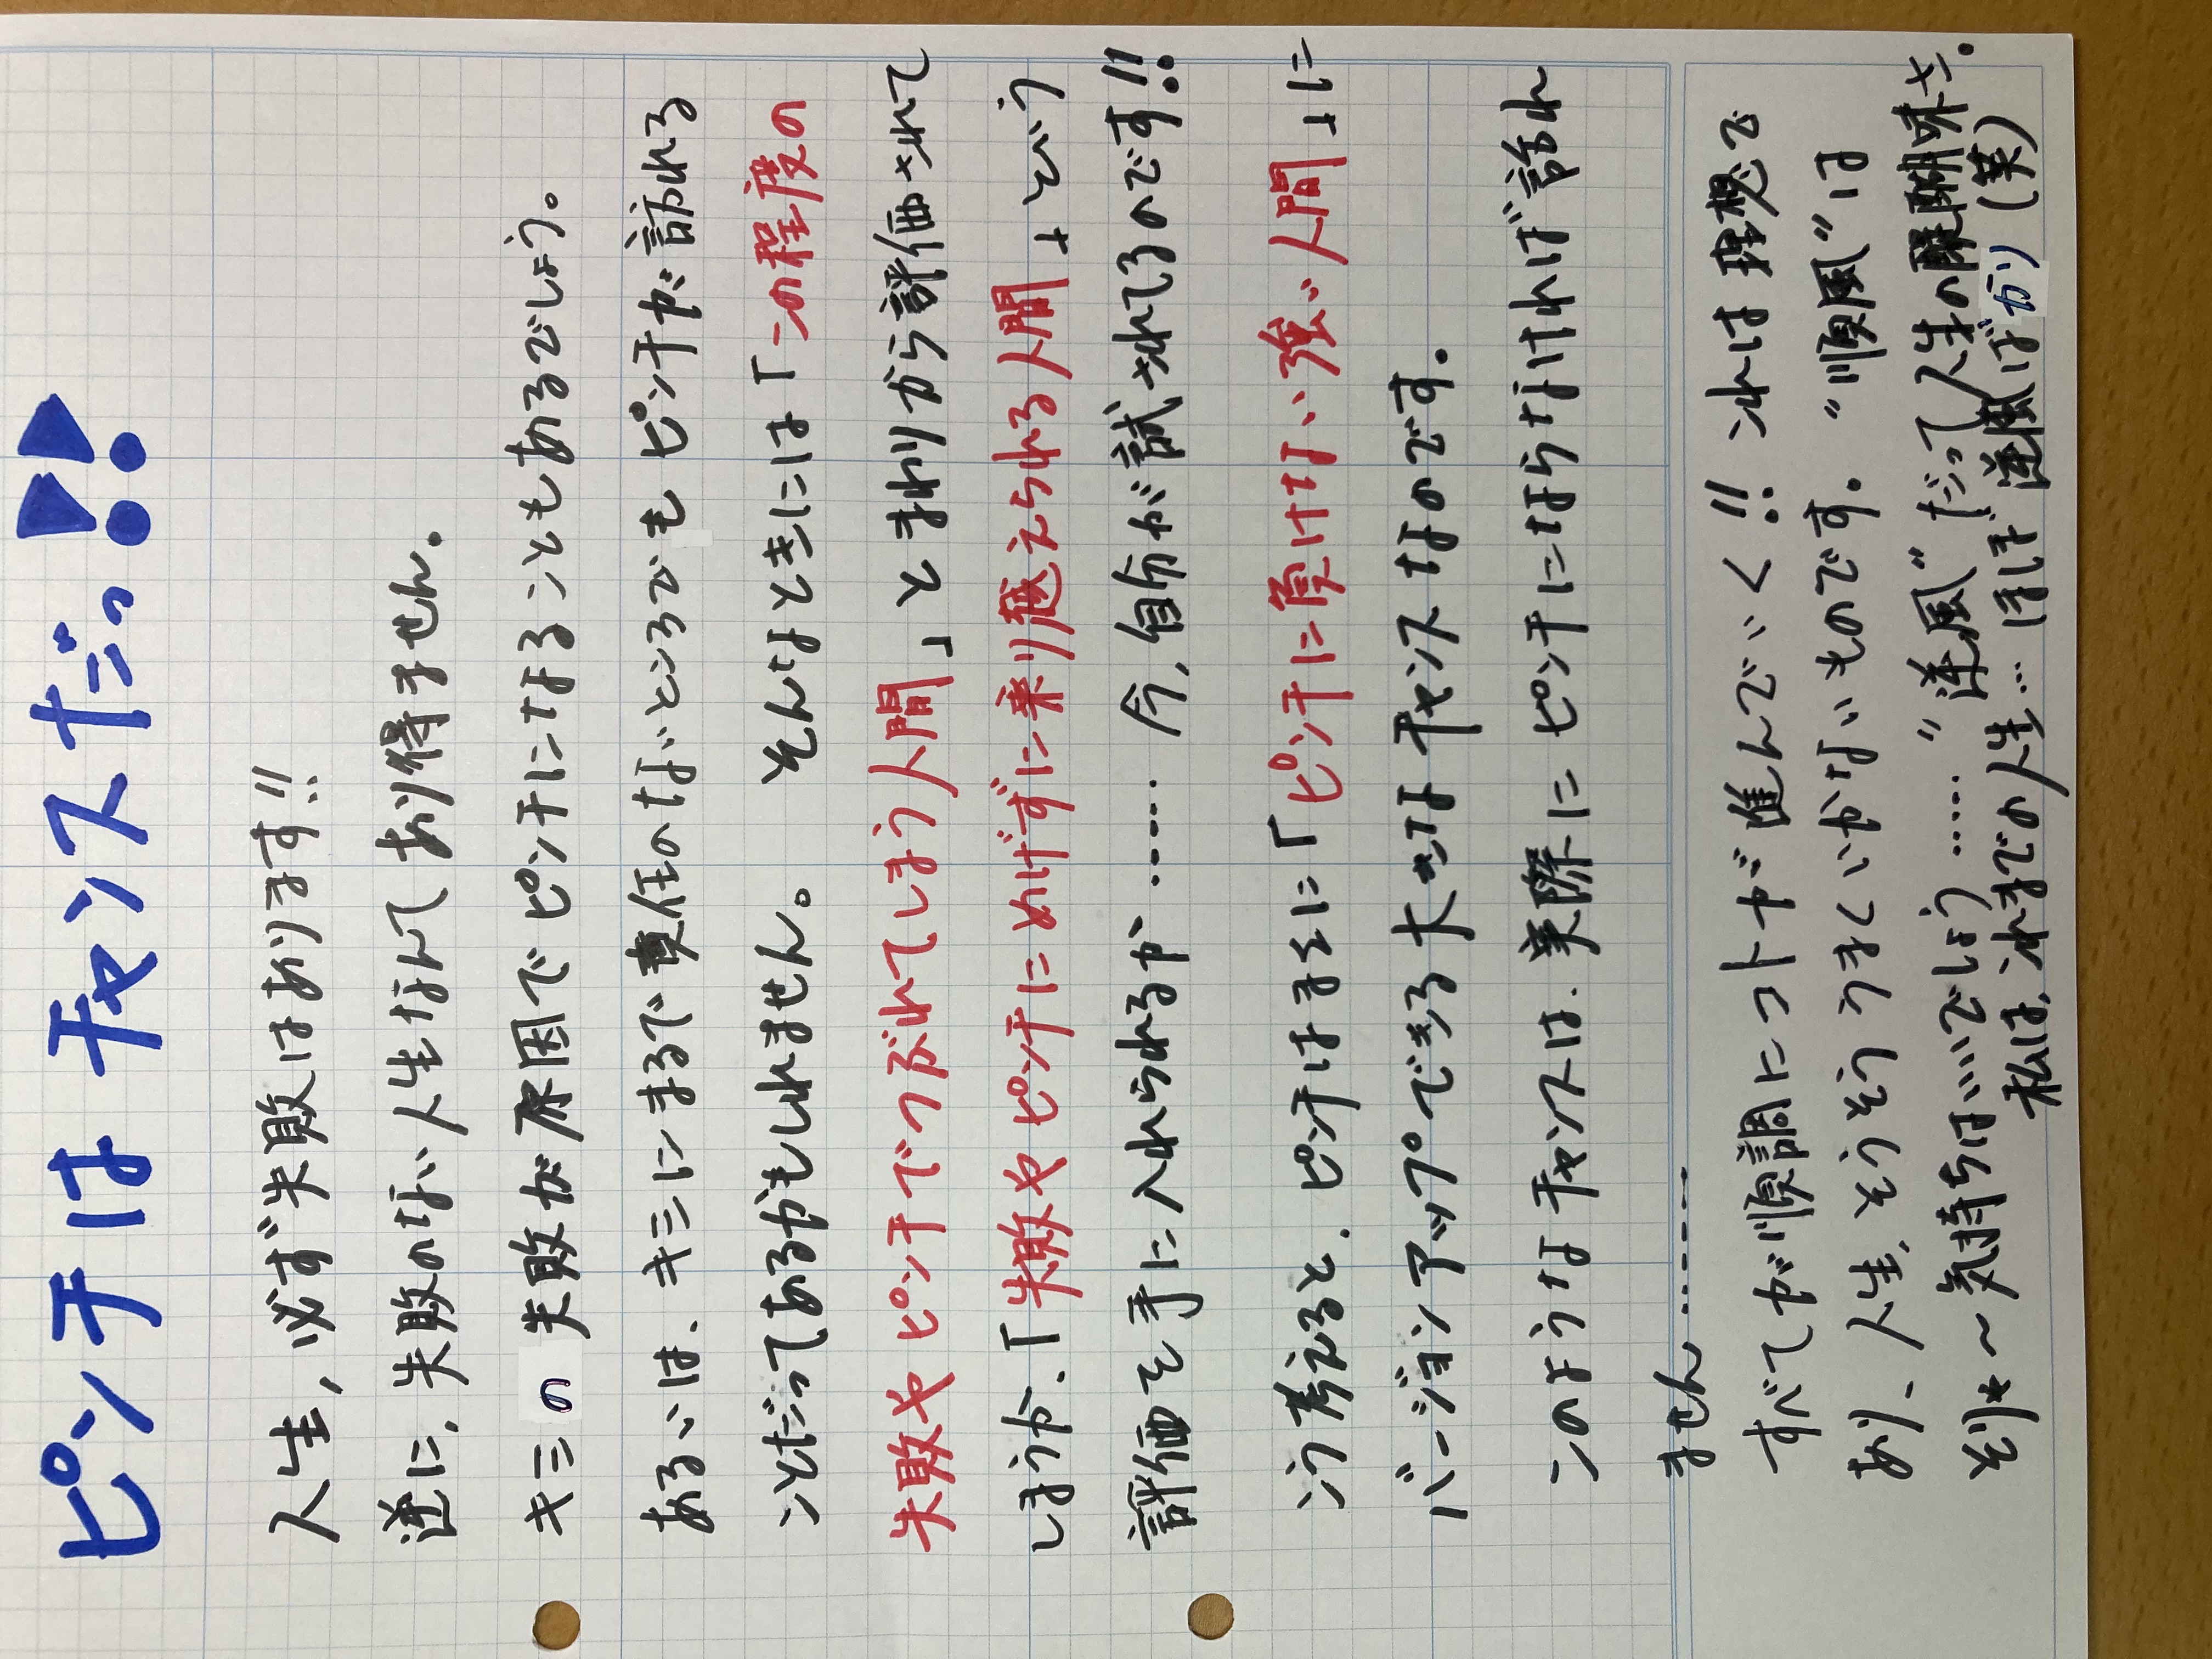 ピンチはチャンスだっ!!
人生,必ず失敗はあります!!
逆に、失敗のない人生なんてあり得ません.
キミの失敗が原因でピンチになることもあるでしょう。
あるいは、キミにまるで責任のないところでもピンチが訪れる
ことだってあるかもしれません。 そんなときには「この程度の
失敗やピンチでつぶれてしまう人間」とまわりから評価されて
しまうか、「失敗やピンチにめげずに乗り越えられる人間」という
評価を手に入れられるか…… 今,自分が試されてるのです!!
こう考えると、ピンチはまさに「ピンチに負けない強い人間」に
バージョンアップできる大切なチャンスなのです.
このようなチャンスは、実際にピンチにならなければ訪れ
ません……
すべてが順調にコトが進んでいく!! これは理想で
あり、人生、そうそううまくいかないものです. "順風"は
そりゃ〜気持ちはいいでしょう…… "逆風"だって人生の醍醐味さ.
私は、これまでの人生… ほぼ逆風ばかり(笑)